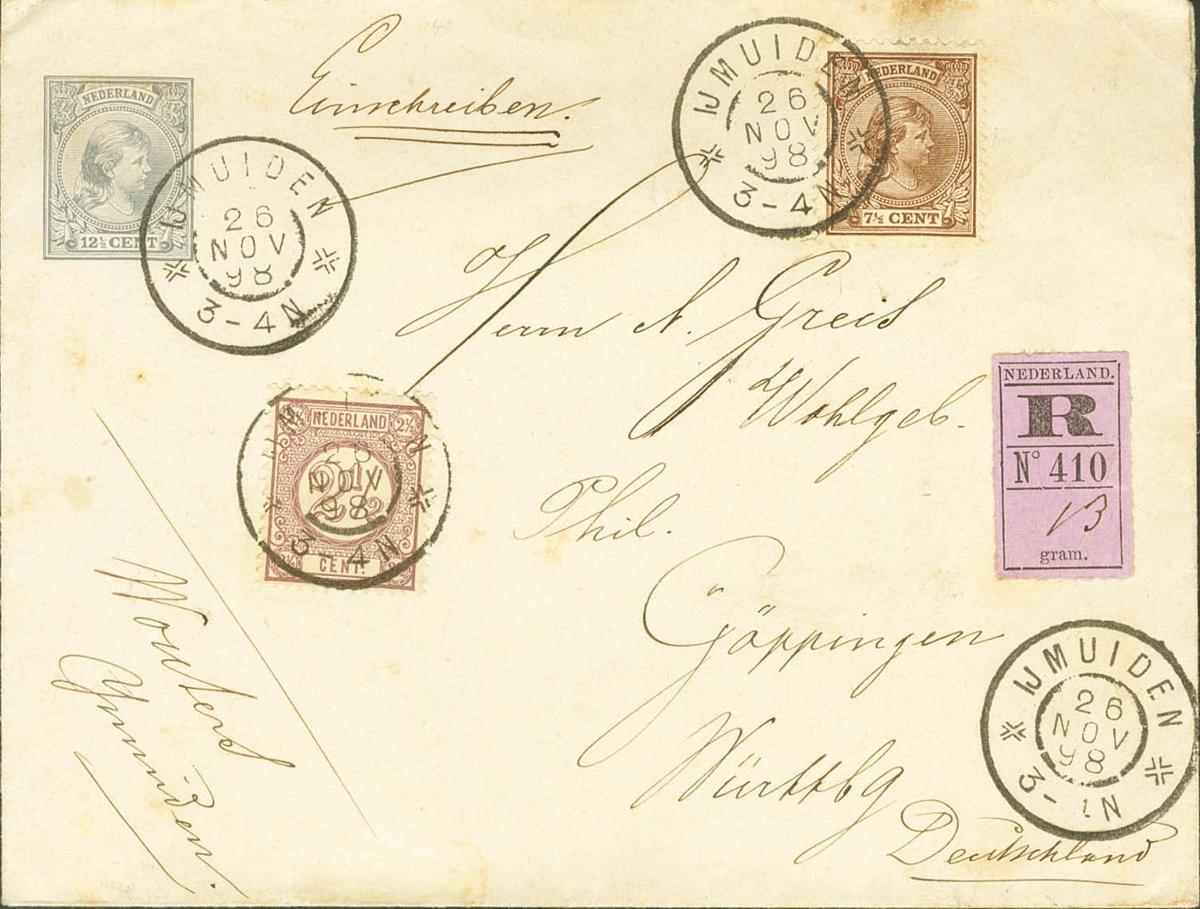 Einschreiben.
NEDERLAND
12½ CENT
IJMUIDEN
26
NOV
98
3-4N
IJMUIDEN
26
NOV
98
3-4N
NEDERLAND
7½ CENT
Herrn A. Greis
Wohlgeb.
Phil.
Göppingen
Württbg
Deutschland
2½ NEDERLAND 2½
2½
CENT.
IJMUIDEN
26
NOV
98
3-4N
NEDERLAND.
R
N° 410
13
gram.
Wouters
Ymuiden.
IJMUIDEN
26
NOV
98
3-4N